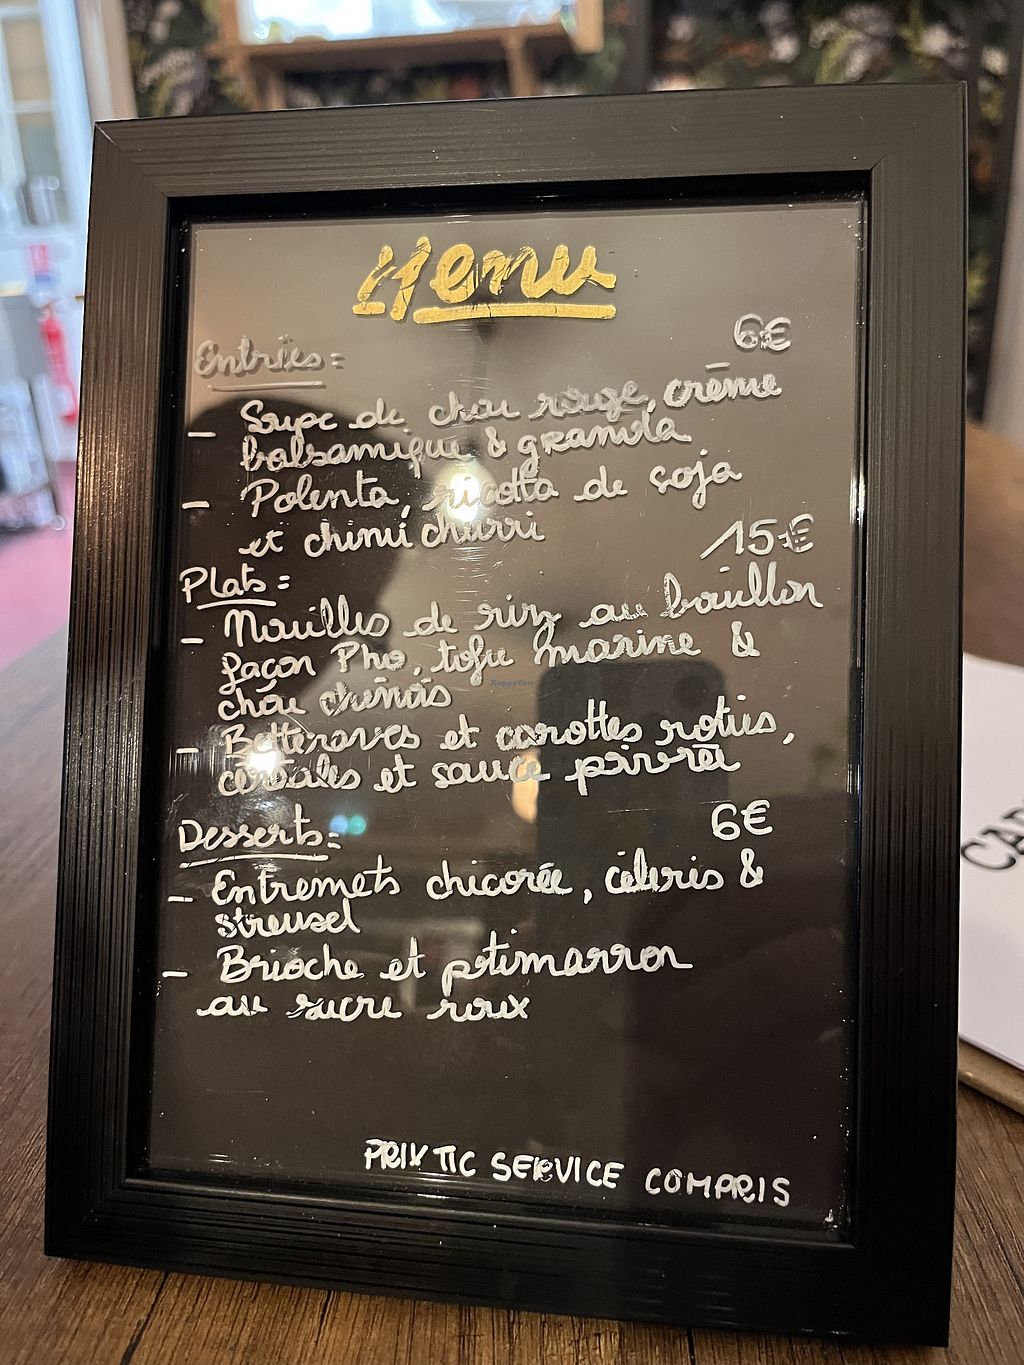 Menu
Entrées: 6€
– Supe de chou rouge, crème
balsamique & granola
– Polenta, ricotta de soja
et chimi churri
15€
Plats:
– Nouilles de riz au bouillon
façon Pho, tofu mariné &
chou chinois
– Betteraves et carottes roties,
céréales et sauce poivrée
Desserts: 6€
– Entremets chicorée, céleris &
streusel
– Brioche et potimarron
au sucre roux
PRIX TTC SERVICE COMPRIS
CA
HappyCow